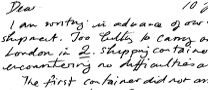 Dear 10 J
I am writing in advance of our
shipment. Too bulky to carry on
London in 2. shipping container
encountering no difficulties a
The first container did not arr